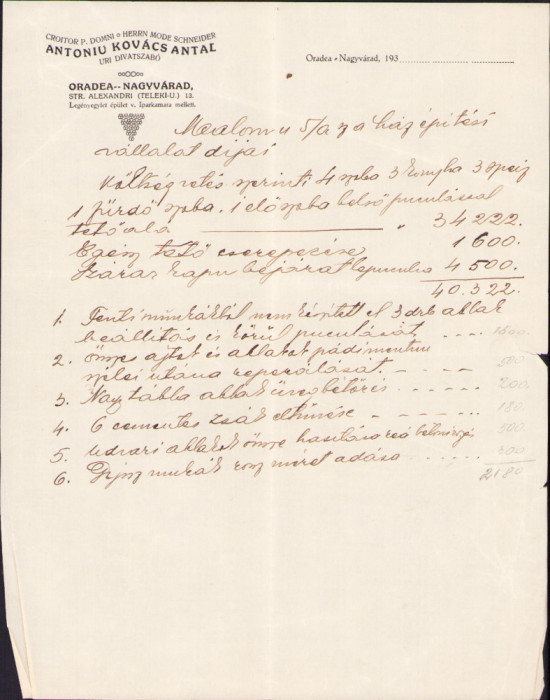 CROITOR P. DOMNI o HERRN MODE SCHNEIDER
ANTONIU KOVÁCS ANTAL
URI DIVATSZABÓ
ORADEA-NAGYVÁRAD,
STR. ALEXANDRI (TELEKI-U.) 13.
Legényegylet épület v. Iparkamara mellett.
Oradea-Nagyvárad, 193
Malom u 5/a sz a ház építési
vállalat díjai
Költségvetés szerint: 4 szoba 3 konyha 3 speiz
1 fürdő szoba. 1 előszoba belső puculással
tető alá " 34222.
Egész tető cserepezése 1600.
Száraz kapu bejárat lepuculva 4500.
40.322.
1. Fenti munkából nem készített el 3 drb ablak
beállítás és körül puculását, 1500.
2. össze ajtót és ablakot pádimentum
utána reperálását 500
3. Nagy tábla ablak üveg bétörés 200
4. 6 cementes zsák eltünése 180.
5. udvari ablakok össze hasítása 500
6. munkák rossz méret adása 300
2180